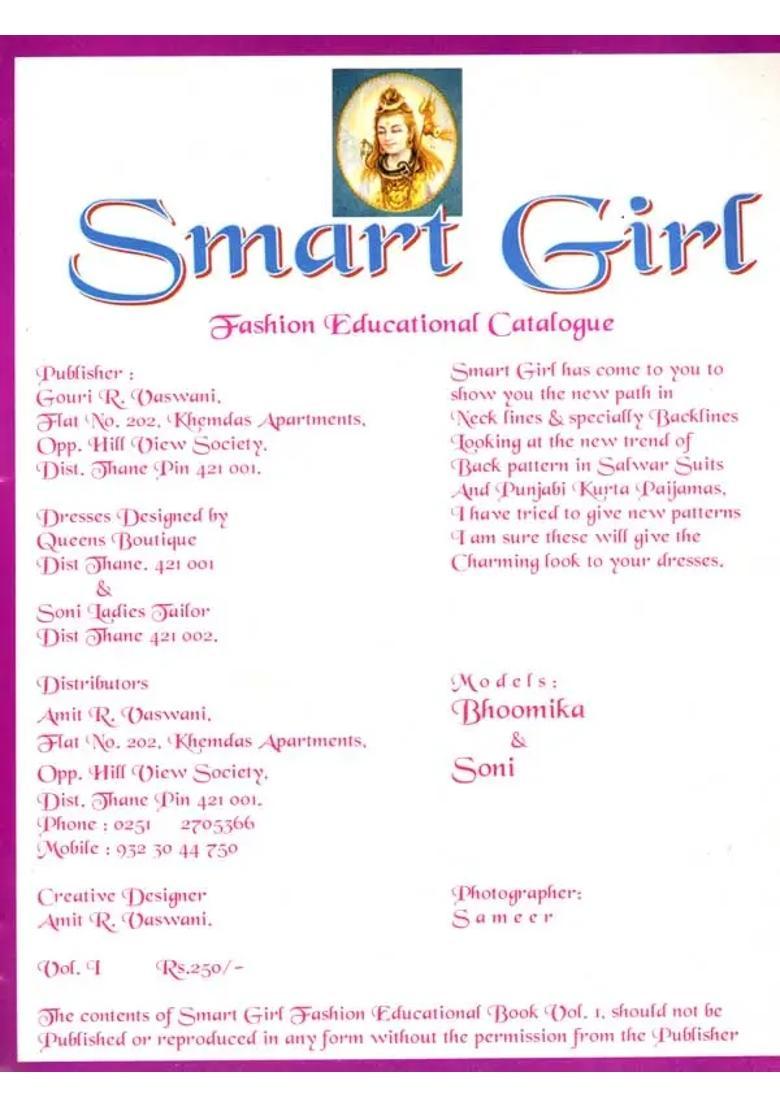 Smart Girl
Fashion Educational Catalogue
Publisher :
Gouri R. Vaswani.
Flat No. 202, Khemdas Apartments,
Opp. Hill View Society,
Dist. Thane Pin 421 001.
Dresses Designed by
Queens Boutique
Dist Thane. 421 001
&
Soni Ladies Tailor
Dist Thane 421 002.
Smart Girl has come to you to
show you the new path in
Neck lines & specially Backlines
Looking at the new trend of
Back pattern in Salwar Suits
And Punjabi Kurta Paijamas,
I have tried to give new patterns
I am sure these will give the
Charming look to your dresses.
Distributors
Amit R. Vaswani.
Flat No. 202, Khemdas Apartments,
Opp. Hill View Society,
Dist. Thane Pin 421 001.
Phone : 0251 2705366
Mobile : 932 30 44 750
Models:
Bhoomika
&
Soni
Creative Designer
Amit R. Vaswani.
Photographer:
Sameer
Vol. I Rs.250/-
The contents of Smart Girl Fashion Educational Book Vol. 1, should not be
Published or reproduced in any form without the permission from the Publisher